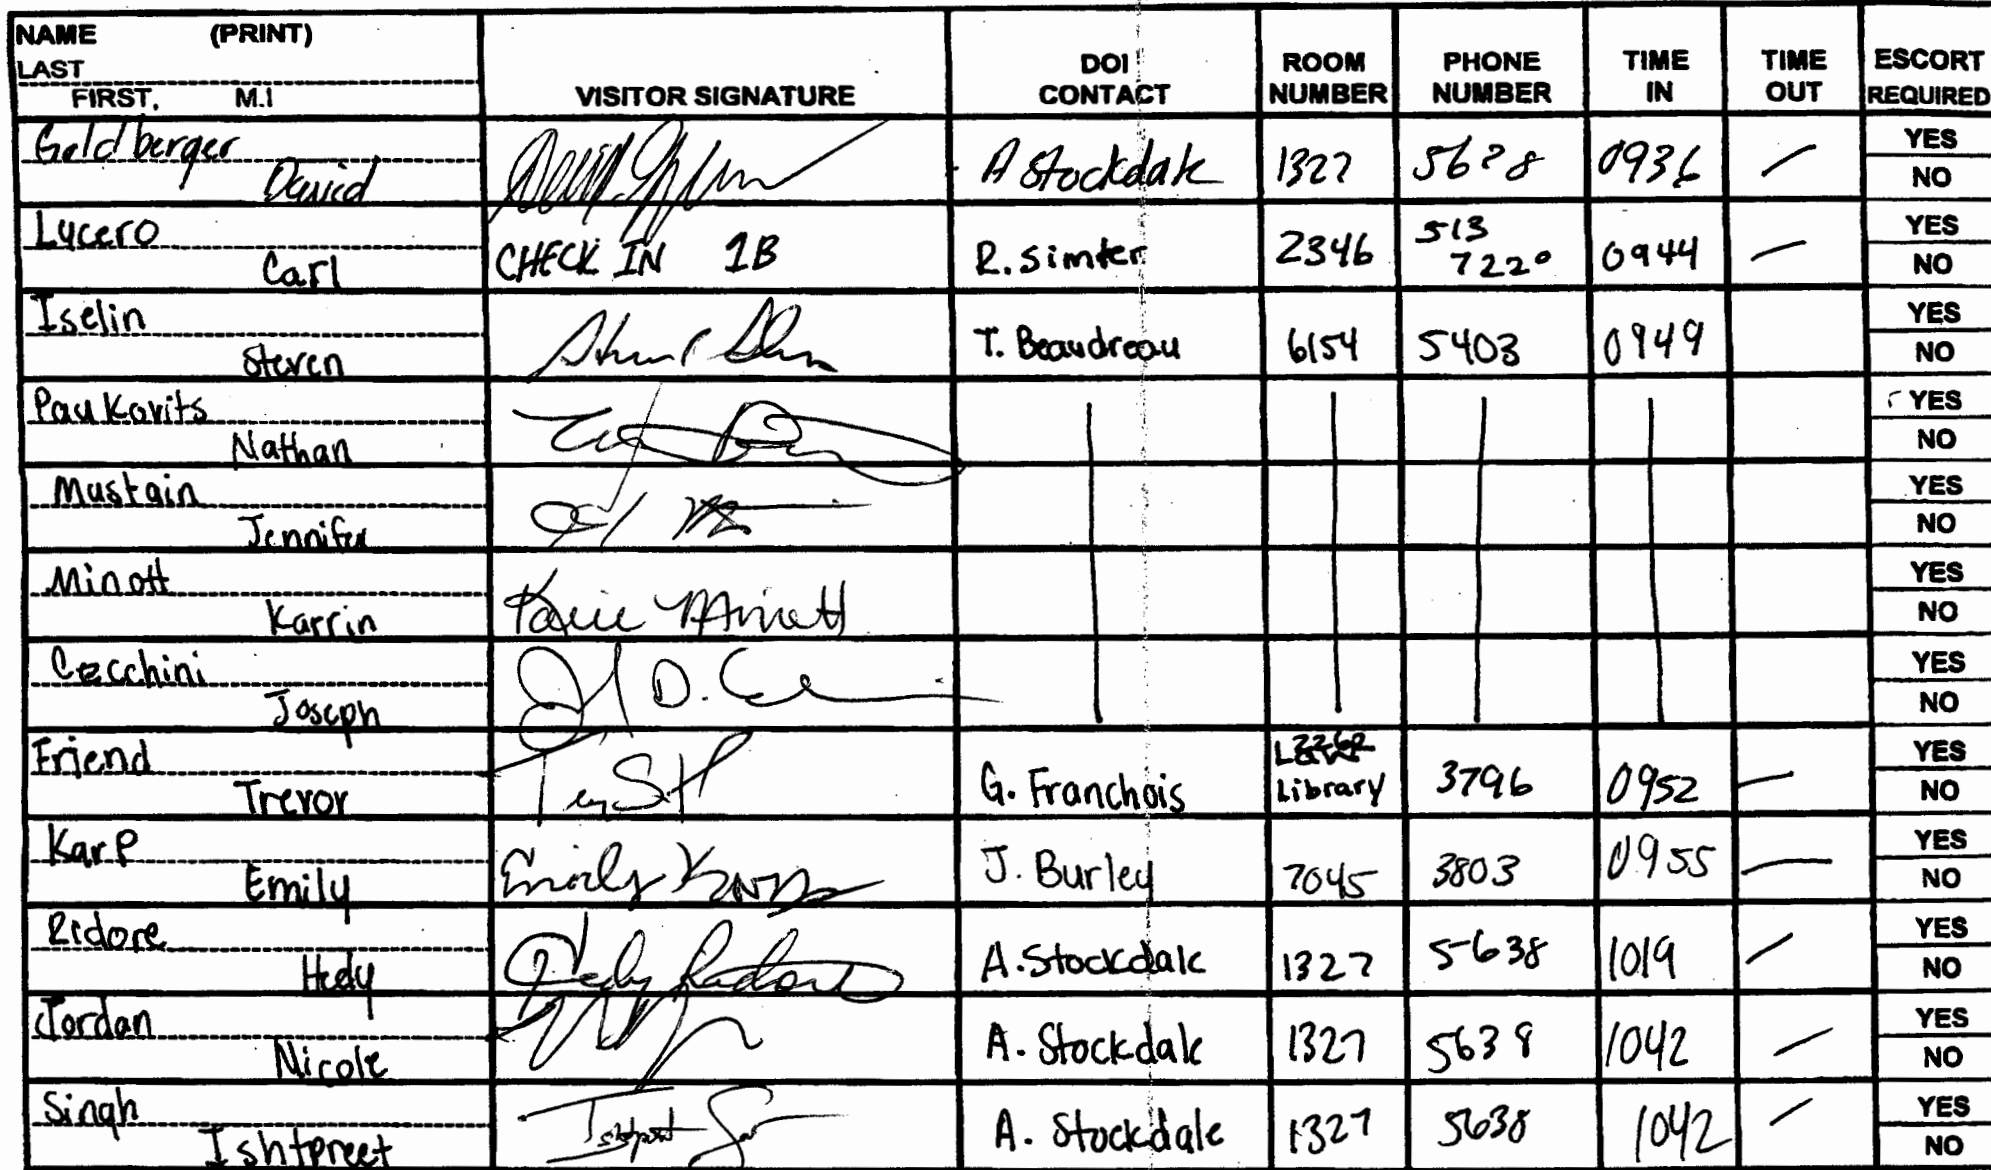 NAME (PRINT)
LAST
FIRST, M.I
VISITOR SIGNATURE
DOI CONTACT
ROOM NUMBER
PHONE NUMBER
TIME IN
TIME OUT
ESCORT REQUIRED
Goldberger David A Stockdale 1327 5638 0936 — YES NO
Lucero Carl CHECK IN 1B R. Simter 2346 513 7220 0944 — YES NO
Iselin Steven T. Beaudreau 6154 5403 0949 YES NO
Paukovits Nathan YES NO
Mustain Jennifer YES NO
Minott Karrin Karrie Minott YES NO
Cecchini Joseph YES NO
Friend Trevor G. Franchois Library 3796 0952 — YES NO
Karp Emily Emily Karp J. Burley 7045 3803 0955 — YES NO
Ridore Hedy Hedy Ridore A. Stockdale 1327 5638 1019 — YES NO
Jordan Nicole A. Stockdale 1327 5638 1042 — YES NO
Singh Ishtpreet A. Stockdale 1327 5638 1042 — YES NO